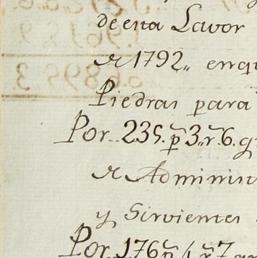 de esta Lavor
de 1792,, enqu
Piedras para
Por 235. p̃ 3,, r̃ 6. g
de Adminis
y Sirvientes
Por 176 p̃ r̃ 7